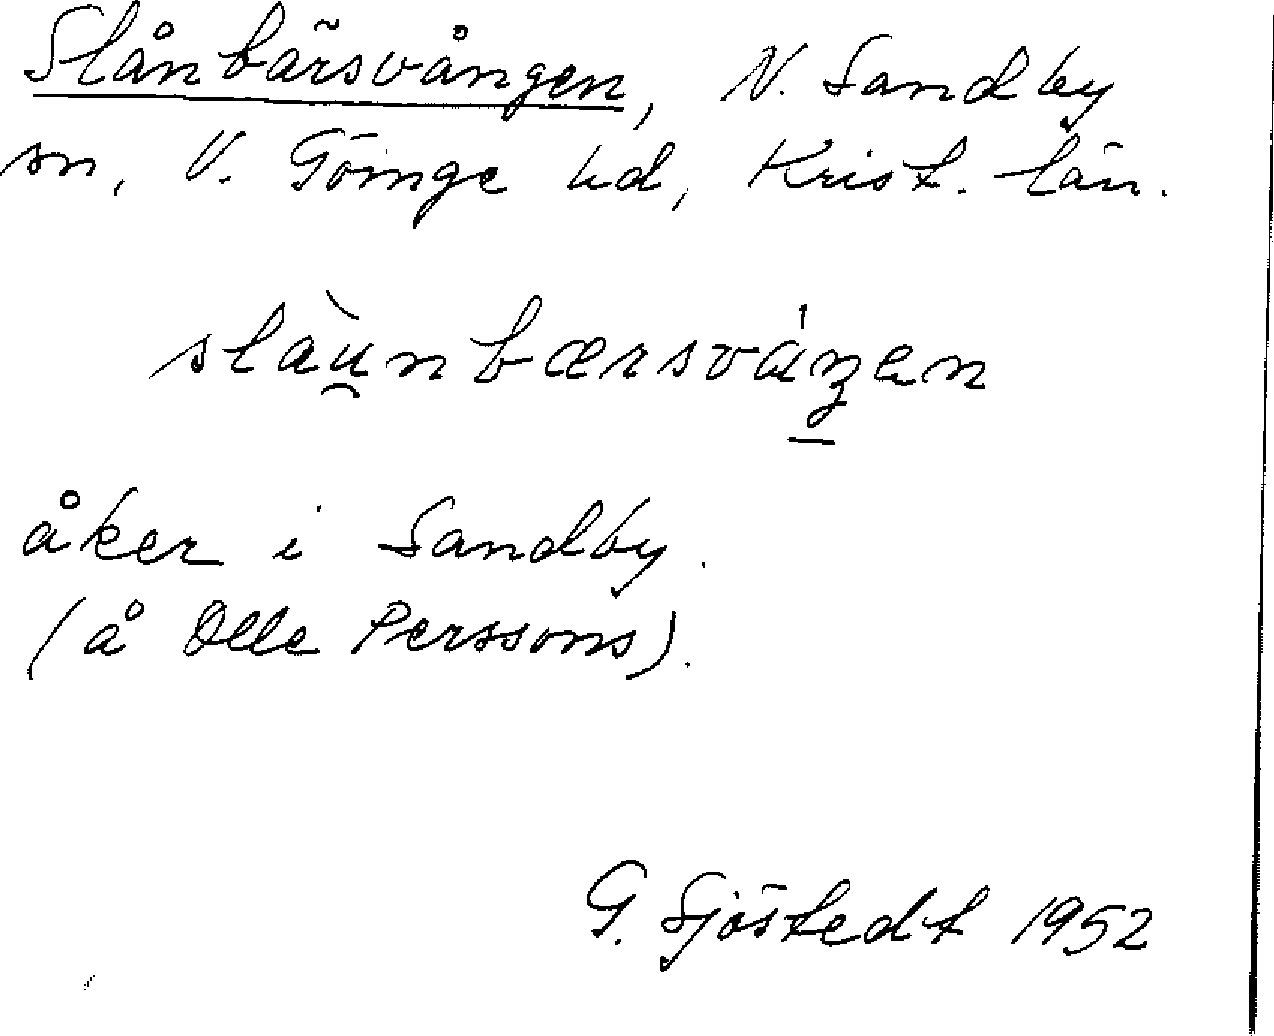 Slånbärsvången, N. Sandby
sn, V. Göinge hd, Krist. län.
slàu̯nbærsváŋen
åker i Sandby.
(å Olle Perssons).
G. Sjöstedt 1952